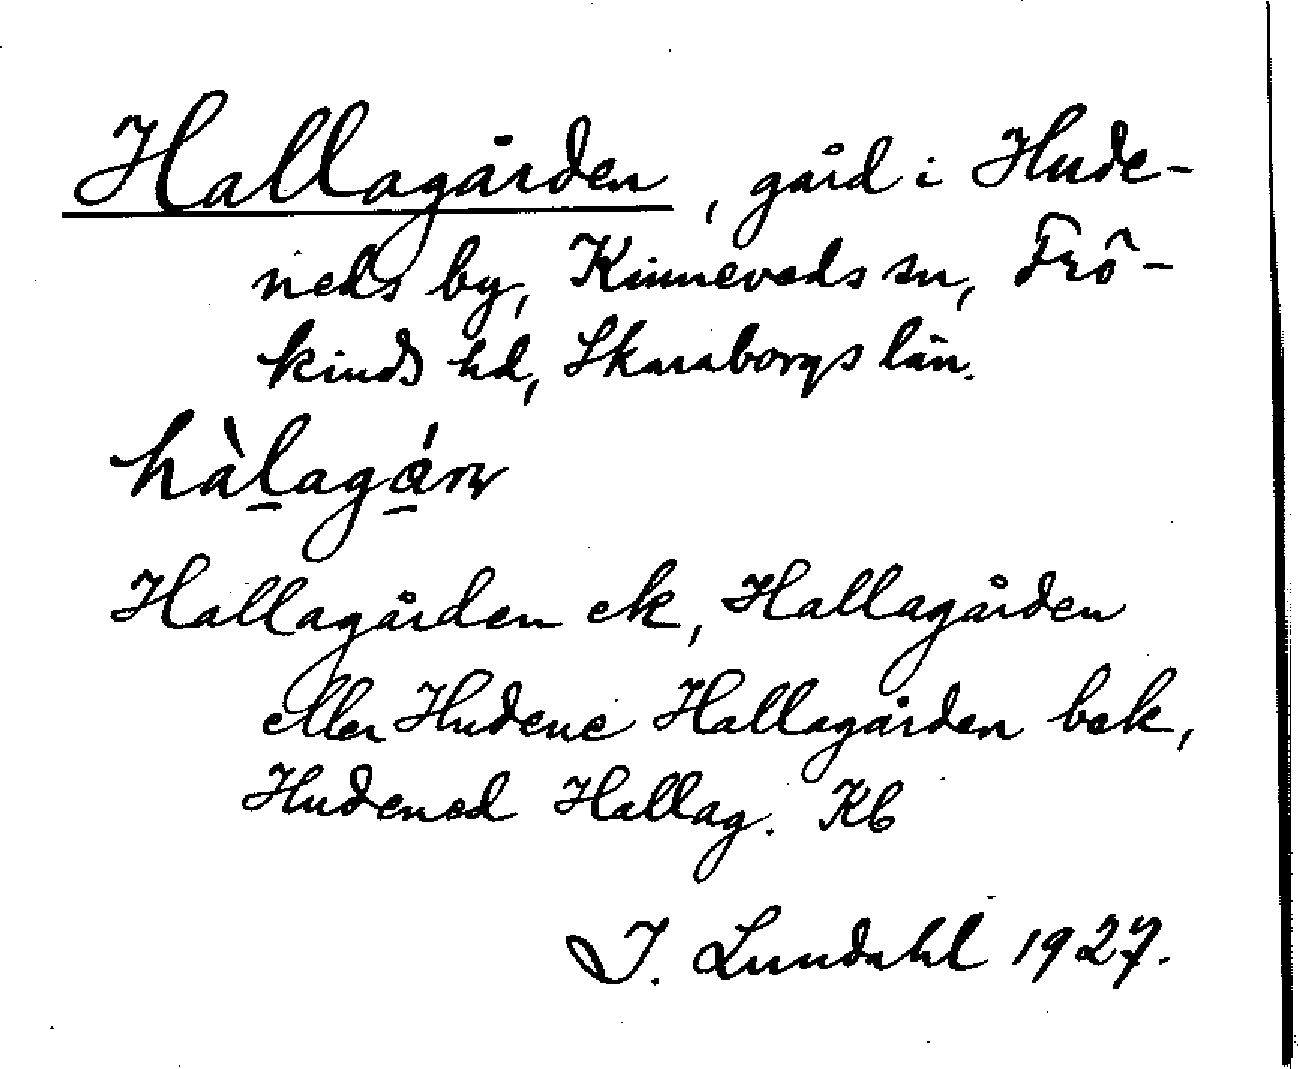 Hallagården, gård i Hude-
neds by, Kinneveds sn, Frö-
kinds hd, Skaraborgs län.
hàlagán
Hallagården ek, Hallagården
eller Hudene Hallagården bek,
Hudened Hallag. Kb
I. Lundahl 1927.